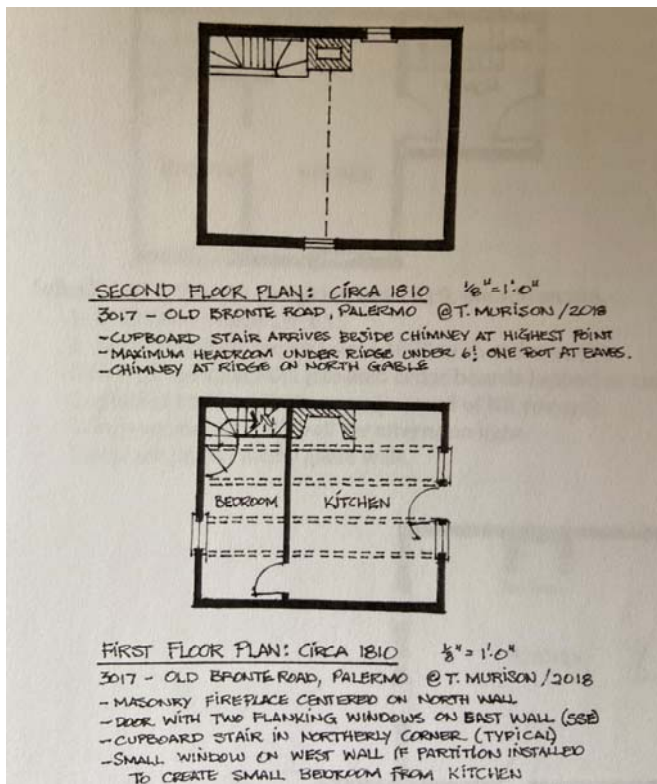 SECOND FLOOR PLAN: CIRCA 1810 1/8" = 1'.0"
3017 - OLD BRONTE ROAD, PALERMO @T. MURISON/2018
- CUPBOARD STAIR ARRIVES BESIDE CHIMNEY AT HIGHEST POINT
- MAXIMUM HEADROOM UNDER RIDGE UNDER 6'. ONE FOOT AT EAVES.
- CHIMNEY AT RIDGE ON NORTH GABLE
BEDROOM KITCHEN
FIRST FLOOR PLAN: CIRCA 1810 1/8" = 1'.0"
3017 - OLD BRONTE ROAD, PALERMO @T. MURISON/2018
- MASONRY FIREPLACE CENTERED ON NORTH WALL
- DOOR WITH TWO FLANKING WINDOWS ON EAST WALL (SSE)
- CUPBOARD STAIR IN NORTHERLY CORNER (TYPICAL)
- SMALL WINDOW ON WEST WALL IF PARTITION INSTALLED
TO CREATE SMALL BEDROOM FROM KITCHEN